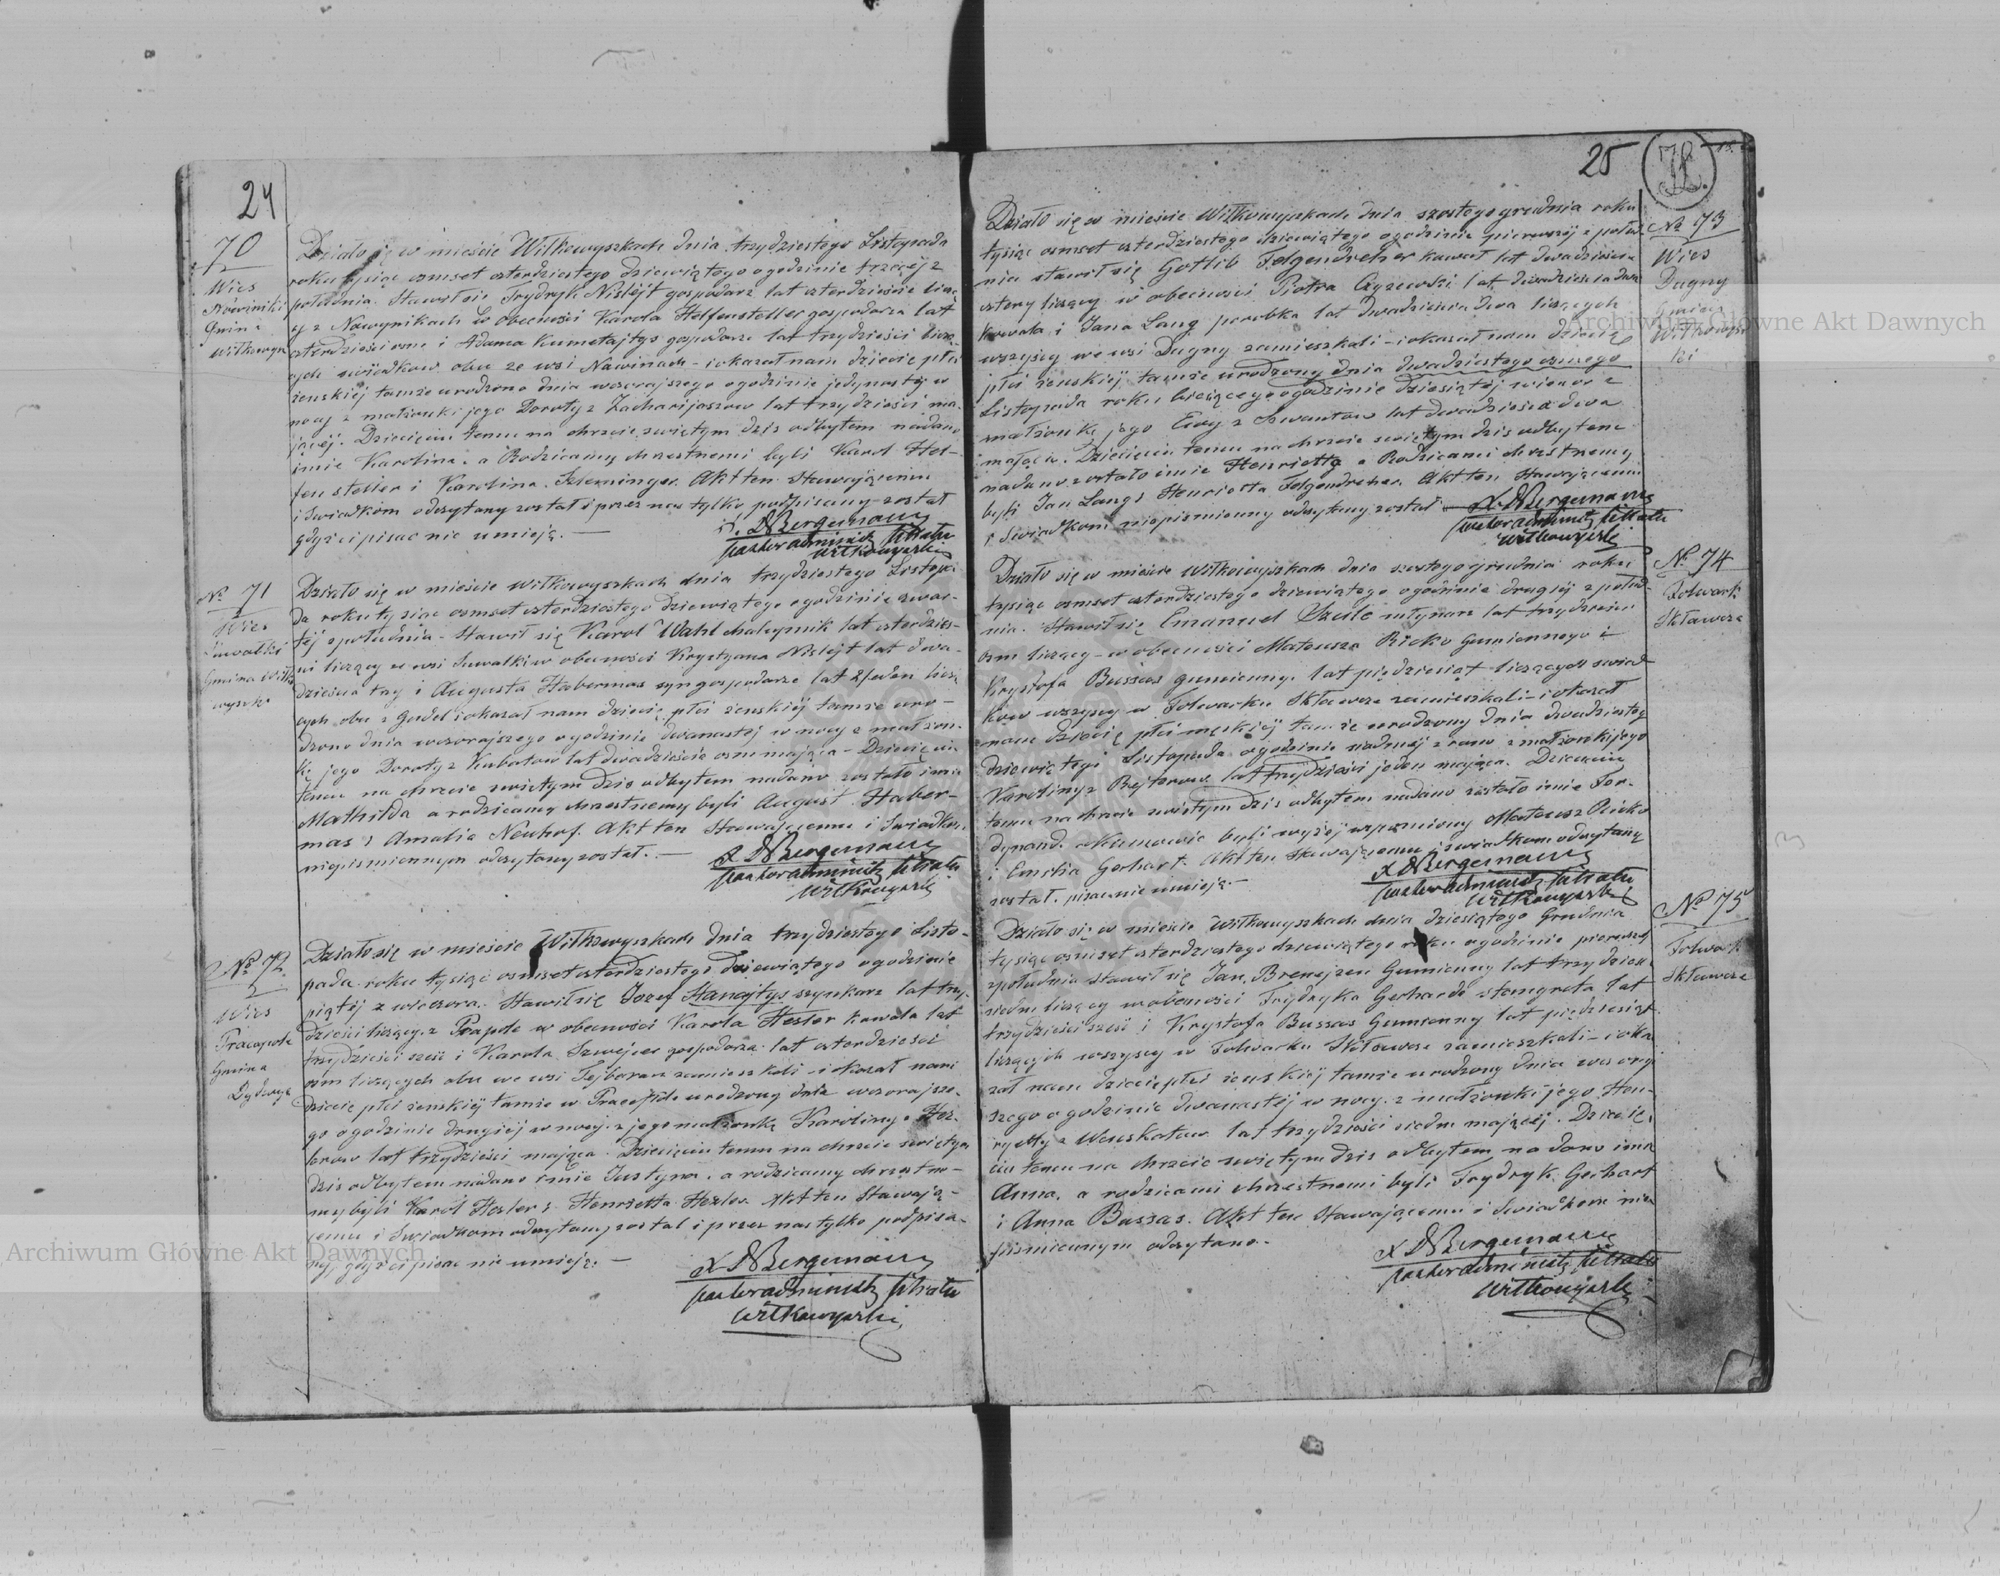 24
70
Wies
Nowiniki
Gmina
Wilkowysz
Działo się w mieście Wilkowyszkach dnia trzydziestego Listopada
roku tysiąc osmset czterdziestego dziewiątego o godzinie trzeciej z
południa. Stawił się Frydryk Nislejt gospodarz lat czterdzieście liczą
cy z Nowynikach w obecności Karola Helfensteller gospodarza lat
czterdzieści osm i Adama Kumetajtys gospodarz lat trzydzieści liczą
cych swiadków obu ze wsi Nawinach - i okazał nam dziecie płci
zenskiej tamże urodzone dnia wczorajszego o godzinie jedynastej w
nocy z małżonki jego Doroty z Zacharijaszow lat trzydzieści ma
jącej. Dziecięciu temu na chrzcie swiętym dzis odbytem nadano
imie Karolina, a Rodzicamy chrzestnemi byli Karol Hel-
fensteller i Karolina Szleminger. Akt ten Stawającemu
i swiadkom odczytany został i przez nas tylko podpisany został
gdyż ci pisac nie umieją. —
X. DBergemann
pastor administ filiału
Wilkowyski
No 71
Wies
Suwalki
Gmina Wilko
wyszki
Działo się w mieście Wilkowyszkach dnia trzydziestego Listopa
da roku tysiąc osmset czterdziestego dziewiątego o godzinie czwar-
tej z południa - Stawił się Karol Wahl chałupnik lat czterdzies-
ci liczący w wsi Suwalkiw obecności Krystyana Nislejt lat dwa-
dziescia trzy i Augusta Habermas syn gospodarza lat ieden licza
cych obu z Gudel i okazał nam dziecię płci zenskiej tamże uro-
dzono dnia wczorajszego o godzinie dwanastej w nocy z małżon-
ki jego Doroty z Kubatow lat dwadzieście osm mająca - Dziecięciu
temu na chrzcie swiętym dzis odbytem nadano zostało imie
Mathilda a rodzicamy chrzestnemy byli August Haber-
mas i Amalia Neuhof. Akt ten Stawającemu i Swiadkom
niepismiennym odczytany został. —
X DBergemann
pastor administ filiału
Wilkowyski
No 72
Wies
Pracapole
Gmina
Działo się w mieście Wilkowyszkach dnia trzydziestego Listo-
pada roku tysiąc osmset czterdziestego dziewiątego o godzinie
piątej z wieczora. Stawił się Jozef Stanajtys szynkarz lat trzy-
dzieści liczący z w obecności Karola Hesler kowala lat
trzydzieści szesc i Karola Szwejcer gospodarza lat czterdziesci
osm liczących obu we wsi zamieszkali - i okazał nam
dziecie płci zenskiej tamże w Pracapole urodzony dnia wczorajsze-
go o godzinie drugiej w nocy z jego małzonką Karoliny z Hes-
lerow lat trzydzieści mająca. Dziecięciu temu na chrzcie swiętym
dzis odbytem nadano imie Justyna, a rodzicamy chrzestne-
my byli Karol Hesler i Henrietta Hesler. Akt ten Stawają-
cemu i Swiadkom odczytany został i przez nas tylko podpisa-
ny, gdyż ci pisac nie umieją. —
X DBergemann
pastor administ filiału
Wilkowyski
25
No 73
Wies
Dugny
Gmina
Wilkowysz
ki
Działo się w mieście Wilkowyszkach dnia szostego grudnia roku
tysiąc osmset czterdziestego dziewiątego o godzinie pierwszej z połud
nia stawił się Gotlib Felgendreher kowal lat dwadzieścia
cztery liczący w obecności Piotra Czyzewski lat dwadzieścia dwa
kowala i Jana Lang parobka lat dwadzieścia dwa liczących
wszyscy we wsi Dugny zamieszkali - i okazał nam dziecię
płci zenskiej tamze urodzony dnia dwadziestego osmego
Listopada roku bieżącego o godzinie dziesiątej wieczor z
małżonki jego Ewy z Szwantow lat dwadzieścia dwa
mająca. Dziecięciu temu na chrzcie swiętym dzis odbytem
nadano zostało imie Henrietta a Rodzicami chrzestnemy
byli Jan Lang i Henrietta Felgendreher. Akt ten Stawającemu
i Swiadkom niepismienny odczytany został
X DBergemann
pastor administ filiału
Wilkowyski
No 74
Folwark
Skławcze
Działo się w mieście Wilkowyszkach dnia szostego grudnia roku
tysiąc osmset czterdziestego dziewiątego o godzinie drugiej z połud-
nia. Stawił się Emanuel Szulc młynarz lat trzydzieści
osm liczący - w obecności Mateusza Ricko Gumiennego i
Krystofa Bussas gumienny lat pięcdziesiąt liczących swiad
kow wszyscy w Folwarku Skławcze zamieszkali - i okazał
nam dziecię płci męskiej tamże urodzony dnia dwudziestego
dziewiątego Listopada o godzinie siodmej z rana z małżonki jego
Karoliny z Rejterow lat trzydzieści jeden mająca. Dziecięciu
temu na chrzcie swiętym dzis odbytem nadano zostało imie Fer-
dynand, a kumowie byli wyżej wspomniony Mateusz Ricko
i Emelia Gerhart. Akt ten Stawającemu i swiadkom odczytany
został, pisac nie umieją. —
X DBergemann
pastor administ filiału
Wilkowyski
No 75
Folwark
Skławcze
Działo się w mieście Wilkowyszkach dnia dziesiątego Grudnia
tysiąc osmset czterdziestego dziewiątego roku o godzinie pierwszej
z południa stawił się Jan Brenejzen Gumienny lat trzydzieści
siedm liczący w obecności Frydryka Gerharda stangreta lat
trzydzieści szesc i Krystofa Bussas Gumienny lat pięcdziesiąt
liczących wszyscy w Folwarku Skławcze zamieszkali - i oka
zał nam dziecie płci zenskiej tamże urodzony dnia wczoraj-
szego o godzinie dwanastej w nocy z małżonki jego Hen-
ryetty z lat trzydzieści siedm mającej. Dziecię
ciu temu na chrzcie swiętym dzis odbytem nadano imie
Anna, a rodzicami chrzestnemi byli Frydryk Gerhart
i Anna Bussas. Akt ten Stawającemu i Swiadkom nie
pismiennym odczytano. -
X DBergemann
pastor administ filiału
Wilkowyski
Archiwum Główne Akt Dawnych
Archiwum Główne Akt Dawnych